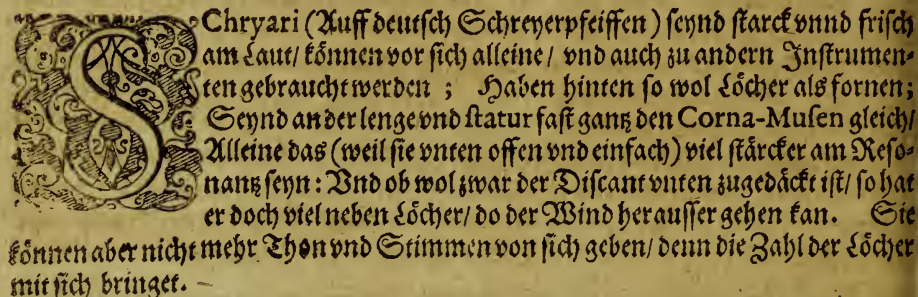 SChryari (Auff deutsch Schreyerpfeiffen) seynd starck vnnd frisch
am Laut/ können vor sich alleine/ vnd auch zu andern Instrumen-
ten gebraucht werden ; Haben hinten so wol Löcher als fornen;
Seynd an der lenge vnd statur fast gantz den Corna-Musen gleich/
Alleine das (weil sie vnten offen vnd einfach) viel stärcker am Reso-
nantz seyn: Vnd ob wol zwar der Discant vnten zugedäckt ist/ so hat
er doch viel neben Löcher/ do der Wind herausser gehen kan. Sie
können aber nicht mehr Thon vnd Stimmen von sich geben/ denn die Zahl der Löcher
mit sich bringet.